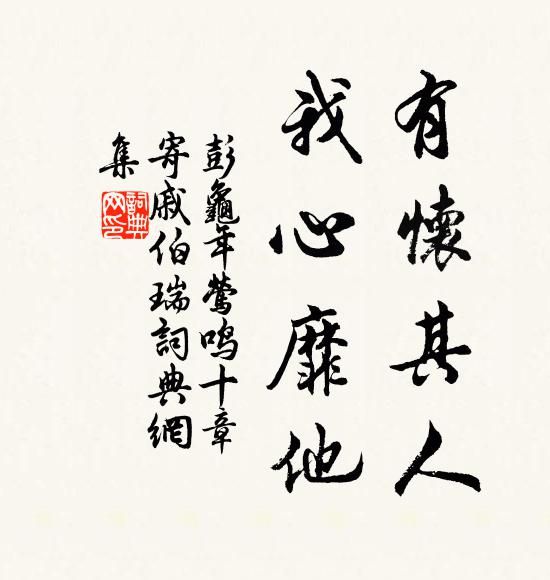 有懷其人
我心靡他
彭龜年鶯鳴十章
寄戚伯瑞詞典網
集
詞典
网印